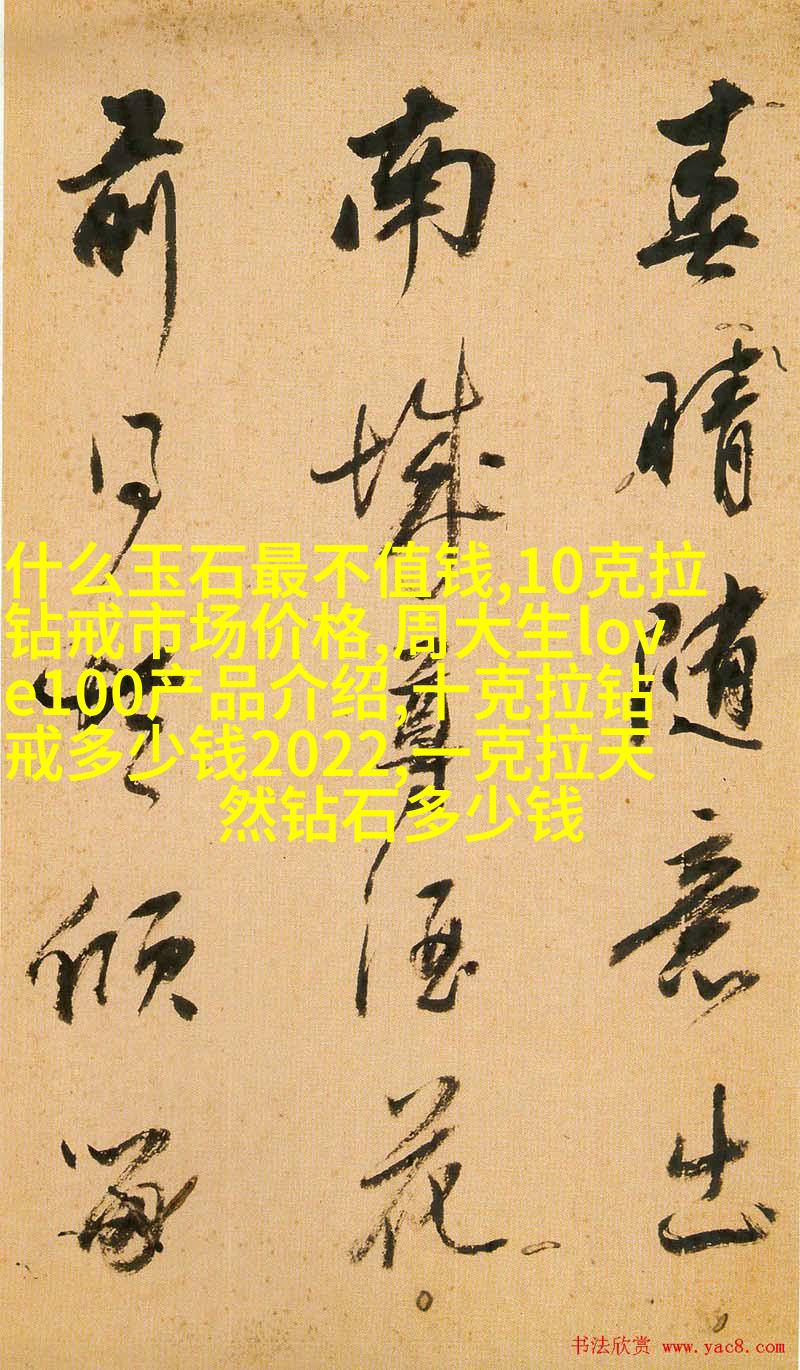 春晴随意出
南城尊酒花
前同傾
什么玉石最不值钱,10克拉
钻戒市场价格,周大生lov
e100产品介绍,十克拉钻
戒多少钱2022,一克拉天
然钻石多少钱
书法欣赏 www.yac8.com